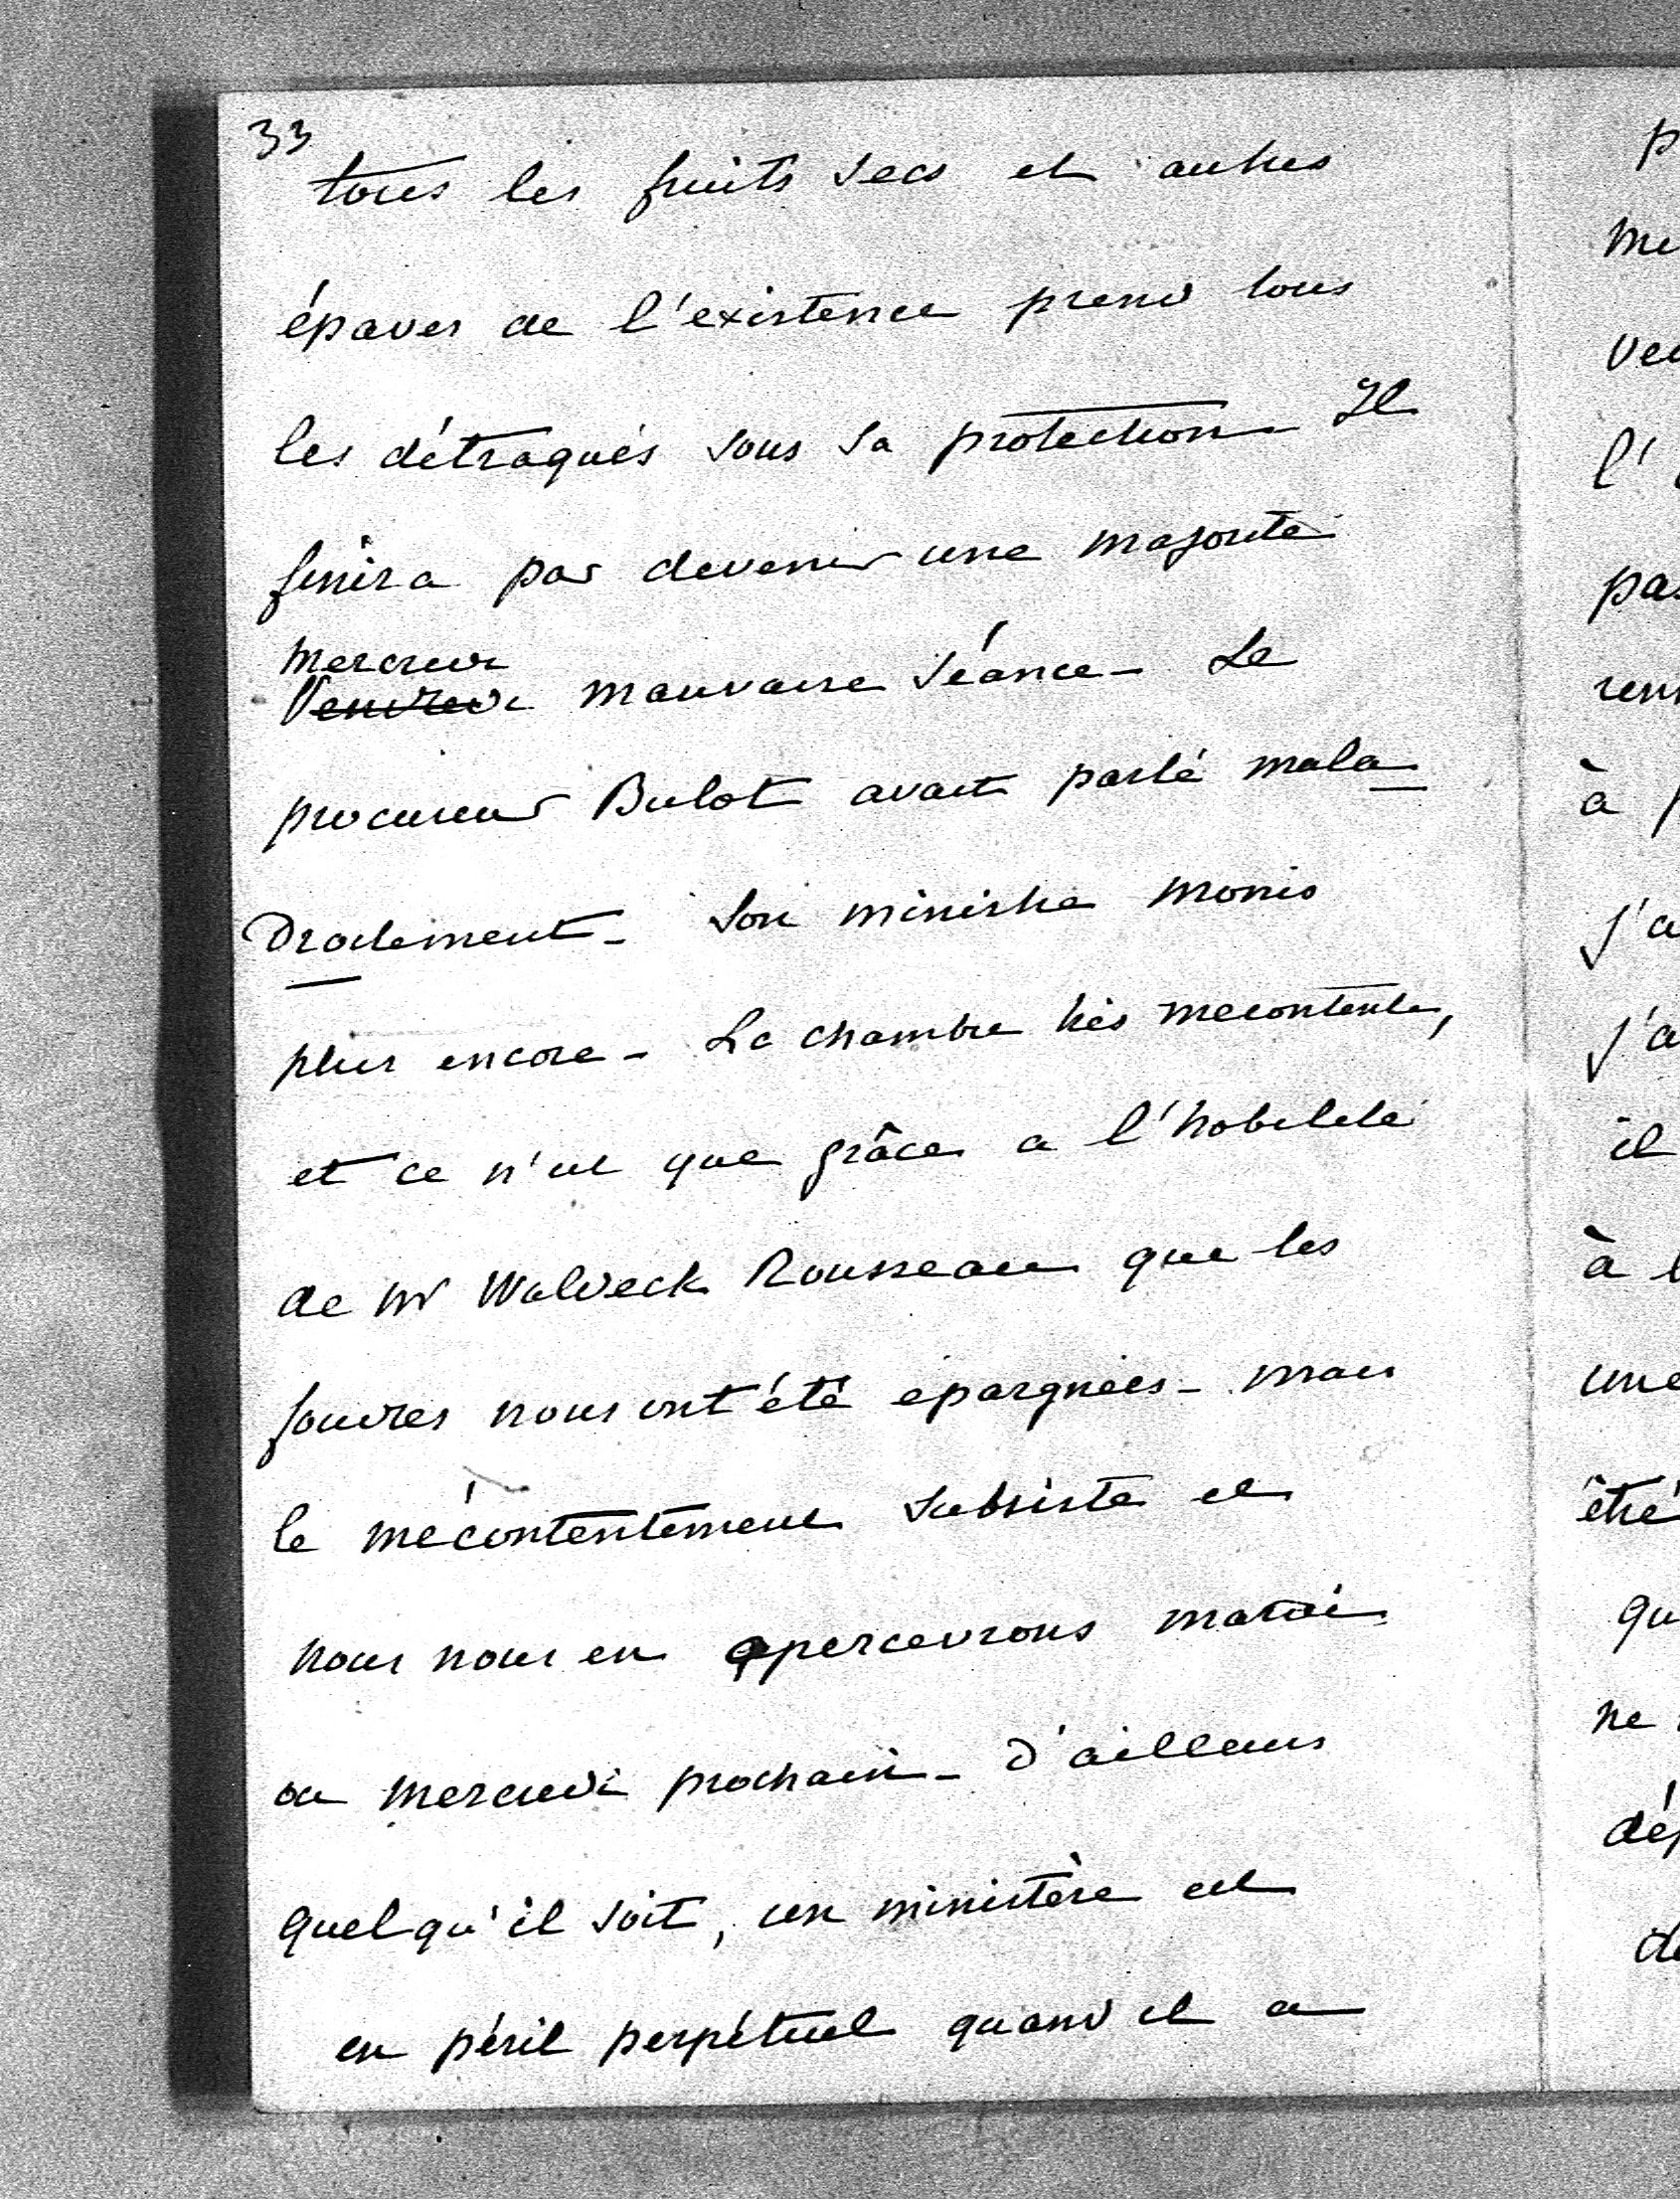 33
tous les fruits secs et autres
épaves de l'existence prend tous
les détraqués sous sa protection - Il
finira par devenir une majorité
Mercredi
Vendredi mauvaise séance - Le
procureur Bulot avait parlé mala
droitement - Son ministre Monis
plus encore - La chambre très mecontente,
et ce n'est que grâce a l'habileté
de Mr Waldeck Rousseau que les
foudres nous ont été épargnées - Mais
le mécontentement subsiste et
nous nous en apercevrons mardi
ou Mercredi prochain - D'ailleurs
quel qu'il soit, un ministère est
en péril perpétuel quand il a
p
me
l'
pas
à p
j'a
j'a
il
à l
une
être
qu
ne
dép
de